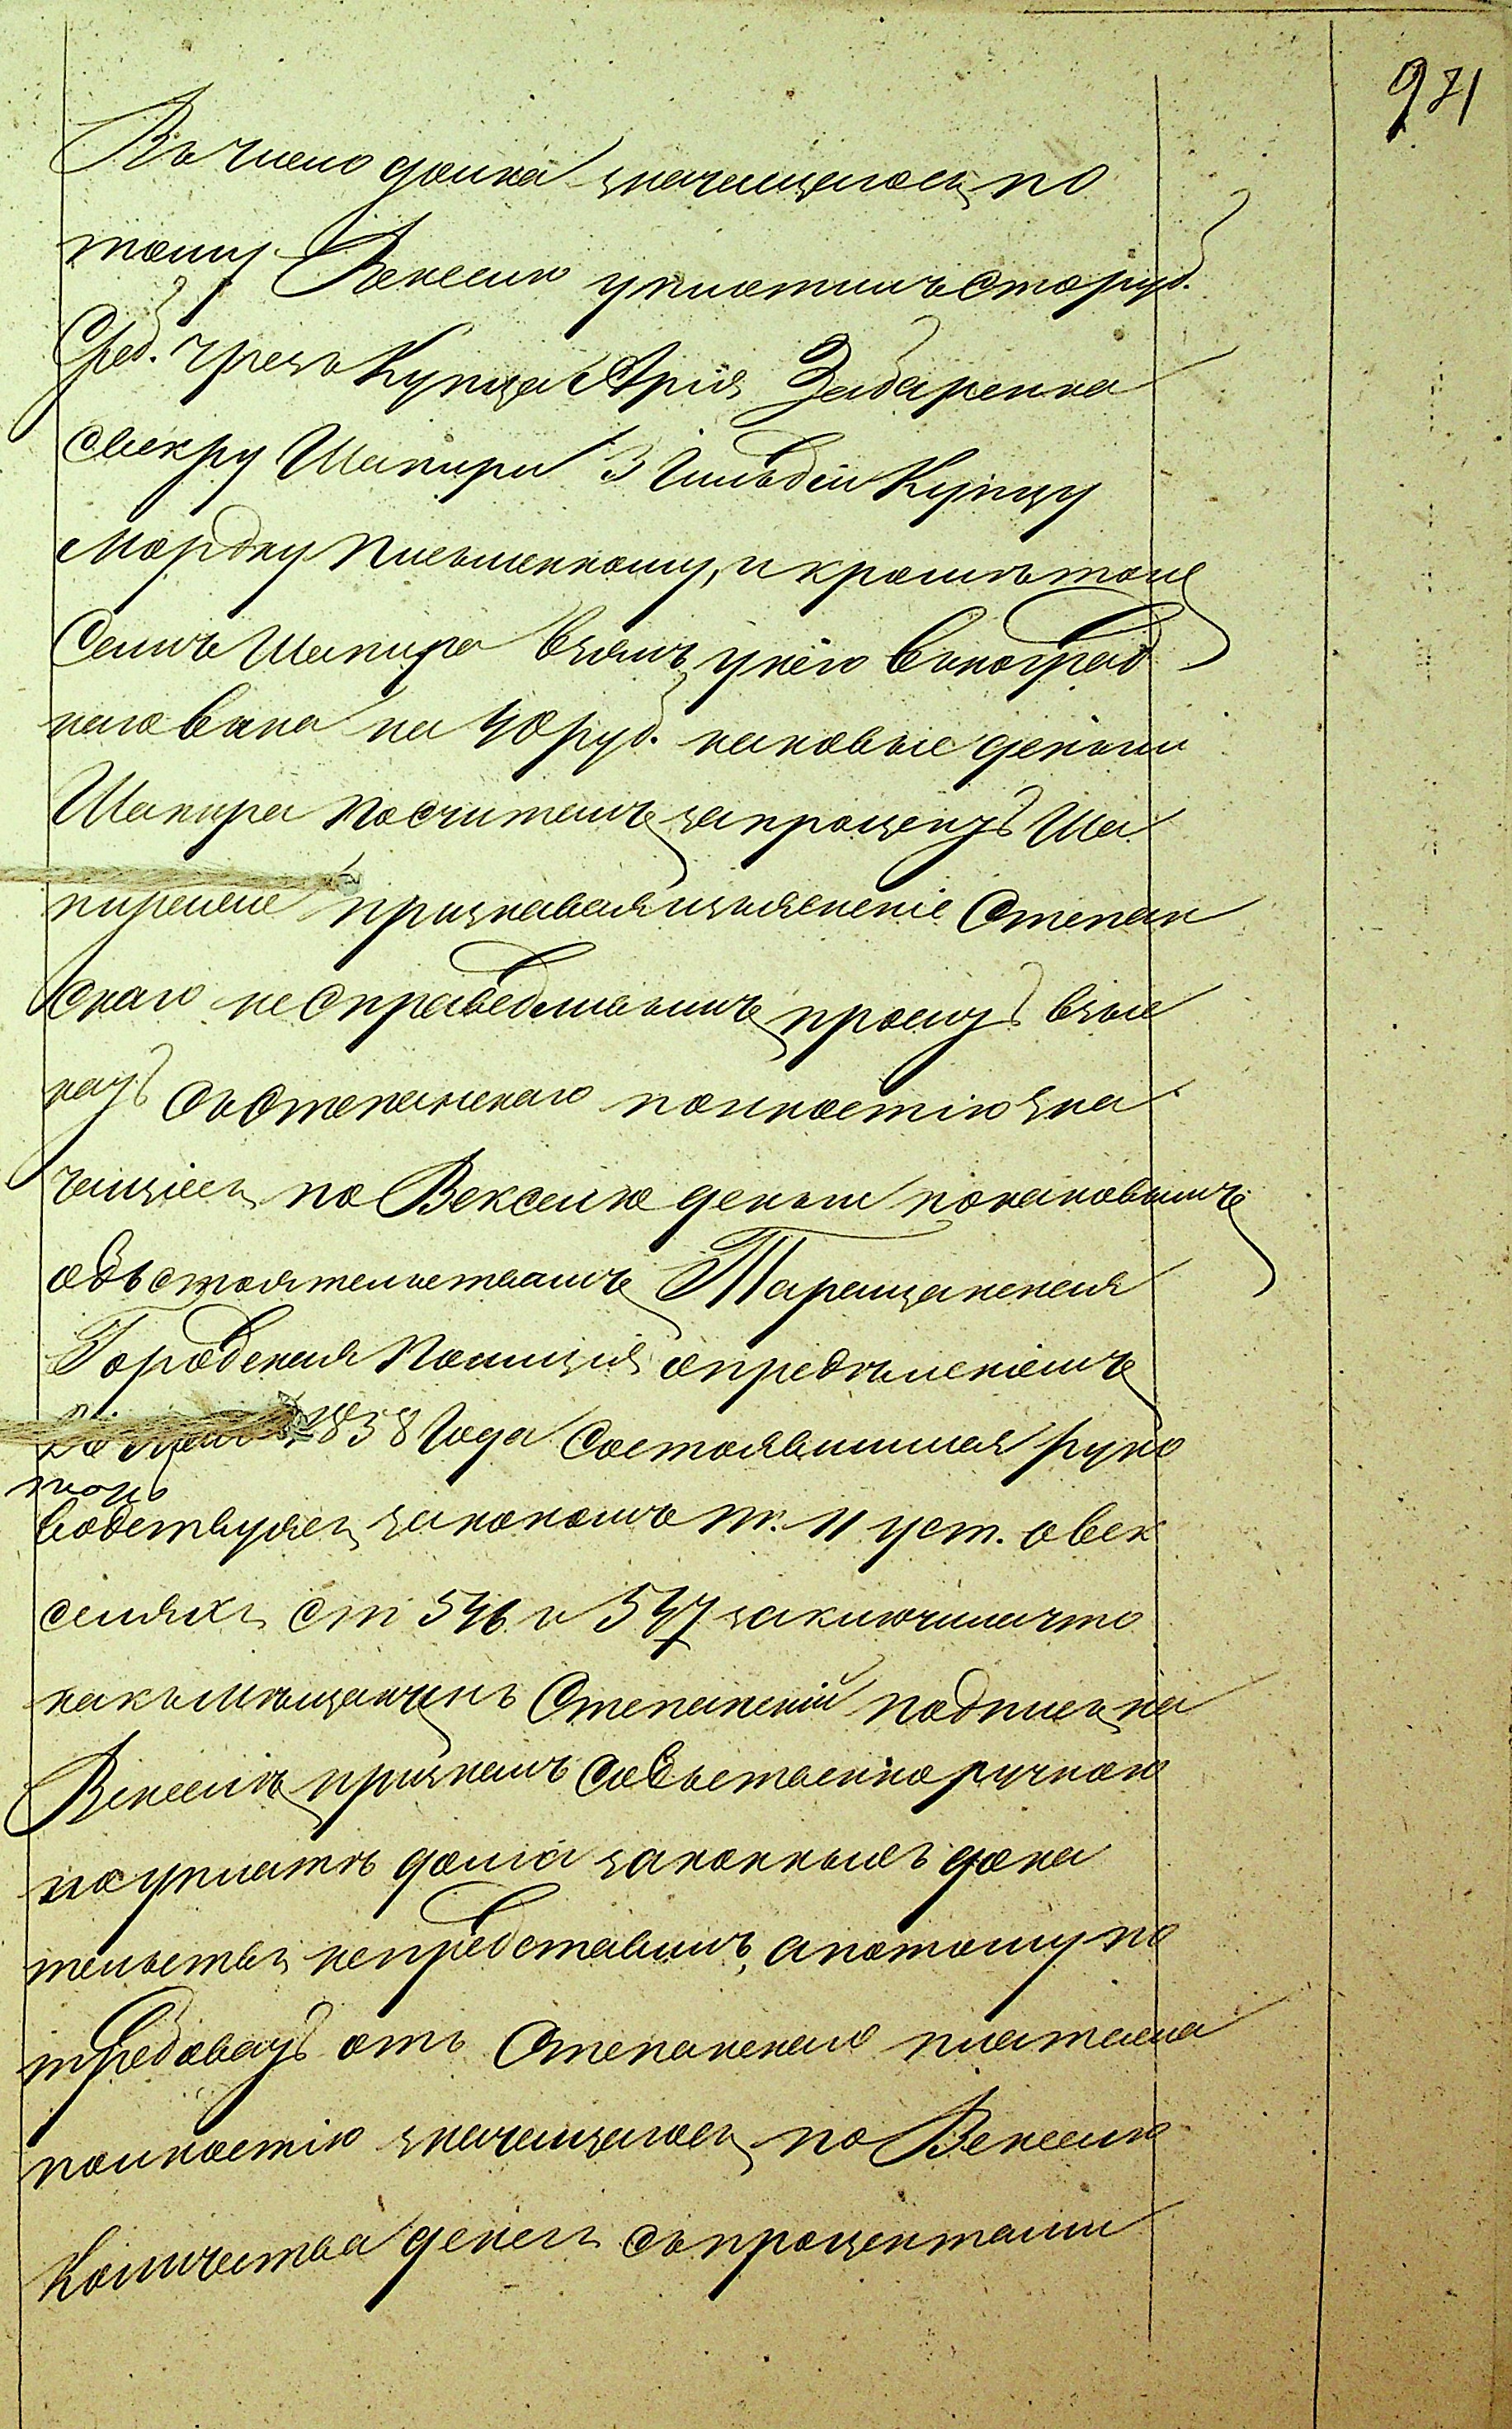 971
Въ число долга значащагося по
тому Векселю уплатилъ сто руб.
Среб. чрезъ Купца Арія Забаренка
свекру Шапиры 3 Гильдіи Купцу
Мордку Письменному, и кромѣ того
Самъ Шапира взялъ у него виноград
наго вина на 40 руб. каковые деньги
Шапира посчиталъ запроцентъ Ша
пиреже признавая изъясненіе Степан
скаго несправедливымъ проситъ взыс
кать съ Степанскаго полностію зна
чащіесь по Векселю деньги по каковымъ
обьстоятельствамъ Таращанская
Городская Полиція опредѣленіемъ
1858 Года Состоявшимся руко
водствуясь закономъ т. 11 уст. о век
селяхъ ст 546 и 547 заключила что
какъ мѣщанинъ Степанскій подпись на
Векселѣ призналъ собьственноручною
но уплатѣ долга законныхъ дока
тельствъ непредставилъ, а потому по
требовать отъ Степанскаго платежа
полностію значащагось по Векселю
Количества денегъ съ процентами